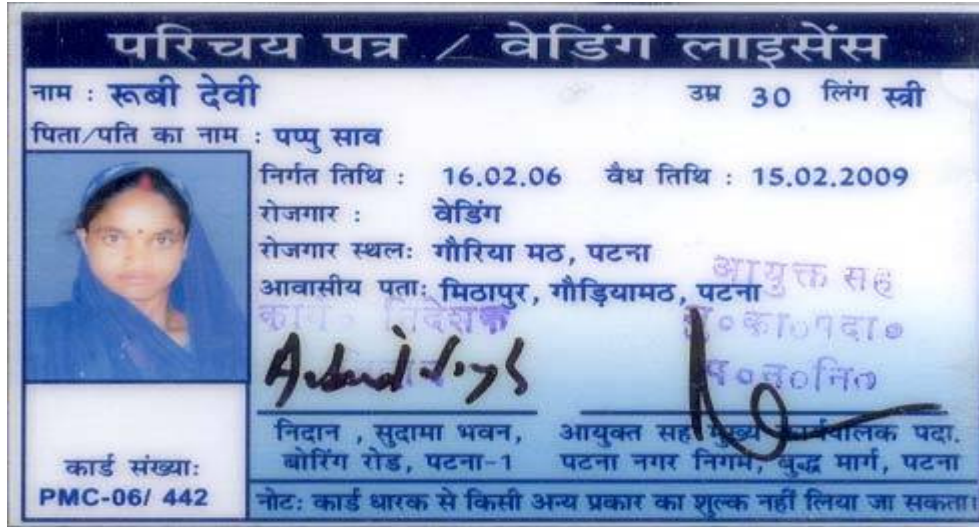 परिचय पत्र / वेडिंग लाइसेंस
नाम : रूबी देवी उम्र 30 लिंग स्त्री
पिता/पति का नाम : पप्पु साव
निर्गत तिथि : 16.02.06 वैध तिथि : 15.02.2009
रोजगार : वेडिंग
रोजगार स्थल: गौरिया मठ, पटना
आवासीय पता: मिठापुर, गौड़ियामठ, पटना
आयुक्त सह
निदेशक
निदान , सुदामा भवन,
बोरिंग रोड, पटना-1
आयुक्त सह मुख्य कार्यपालक पदा.
पटना नगर निगम, बुद्ध मार्ग, पटना
कार्ड संख्या:
PMC-06/ 442
नोट: कार्ड धारक से किसी अन्य प्रकार का शुल्क नहीं लिया जा सकता